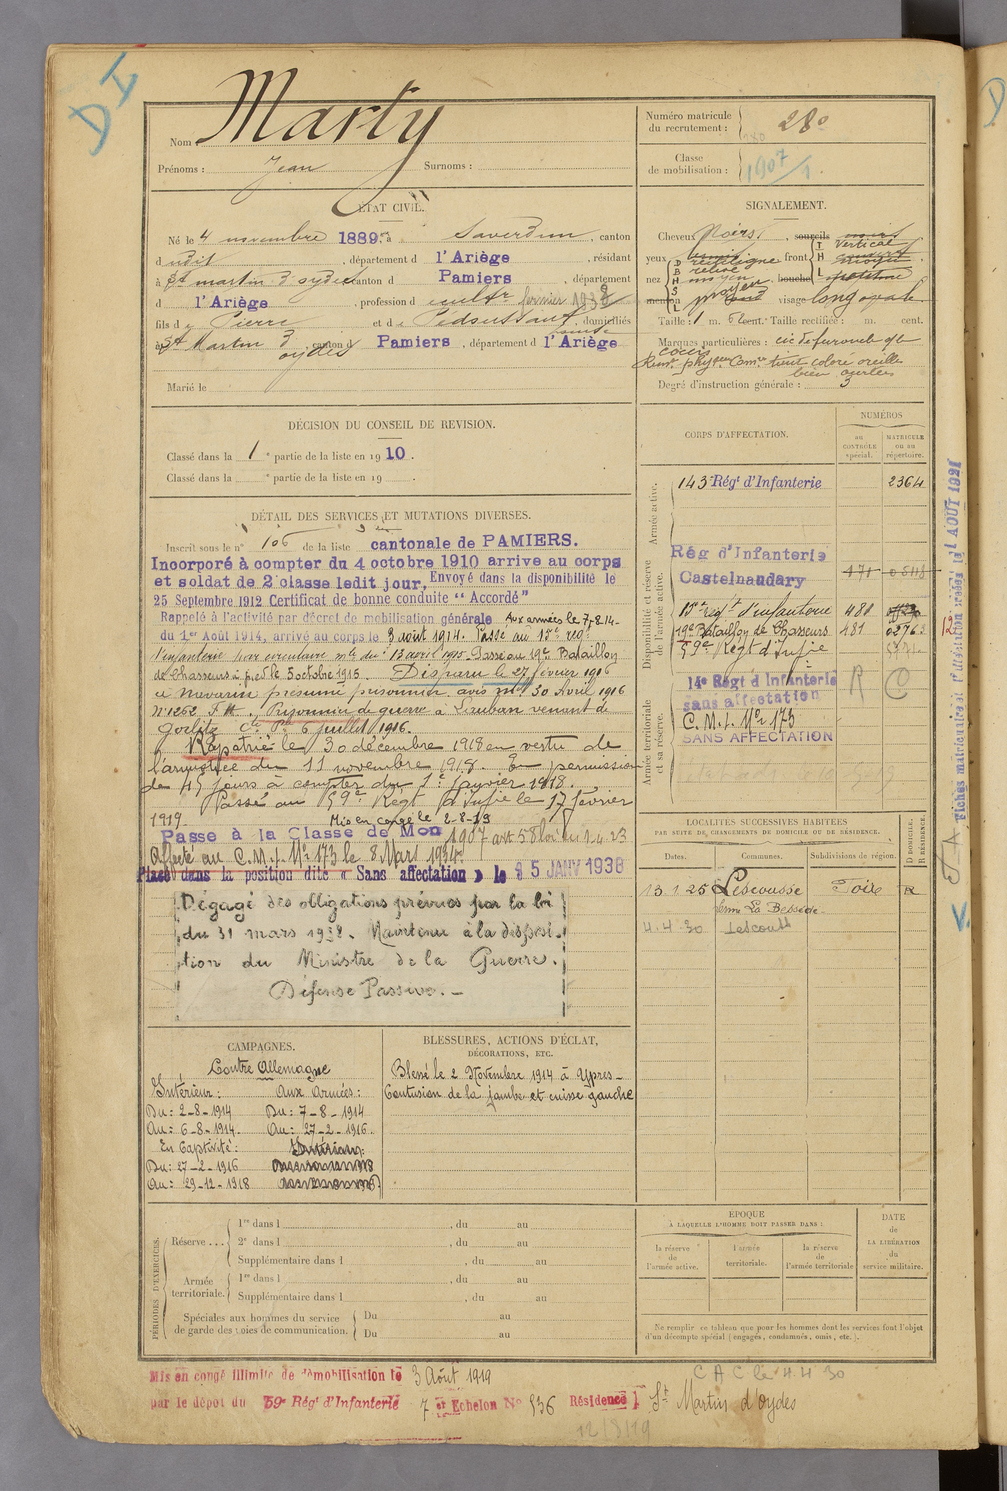 DI
Nom Marty
Prénoms : Jean Surnoms :
Numéro matricule
du recrutement : 280
Classe
de mobilisation : 1907/1
ÉTAT CIVIL.
Né le 4 novembre 1889, à Saverdun, canton
dudit, département d l'Ariège, résidant
à St martin d'oydes canton d Pamiers, département
d l'Ariège, profession de cultr fermier 1938
fils de Pierre et de Pédoussaut, domiciliés
à St Martin d'oydes, canton d Pamiers, département d l'Ariège
Marié le
SIGNALEMENT.
Cheveux Noirs, sourcils
yeux front vertical
rectiligne
nez moyen bouche
menton moyen visage long ovale
Taille : 1 m. cent. Taille rectifiée : m. cent.
Marques particulières : cic de furoncle
teint coloré oreille
bien
Degré d'instruction générale : 3
DÉCISION DU CONSEIL DE REVISION.
Classé dans la 1e partie de la liste en 1910.
Classé dans la e partie de la liste en 19
CORPS D'AFFECTATION.
NUMÉROS
au CONTRÔLE spécial.
MATRICULE ou au répertoire.
Armée active.
143e Régt d'Infanterie 2364
Disponibilité et réserve de l'armée active.
Rég d'Infanterie
Castelnaudary
15e régt d'infanterie 481
19e Bataillon de Chasseurs 481
59e Régt d'Infie
Armée territoriale et sa réserve.
14e Régt d'Infanterie R C
sans affectation
C.M.I. No 173
SANS AFFECTATION
DÉTAIL DES SERVICES ET MUTATIONS DIVERSES.
Inscrit sous le n° 106 de la liste cantonale de PAMIERS.
Incorporé à compter du 4 octobre 1910 arrive au corps
et soldat de 2e classe ledit jour. Envoyé dans la disponibilité le
25 Septembre 1912 Certificat de bonne conduite "Accordé"
Rappelé à l'activité par décret de mobilisation générale Aux armées le 7-8-14-
du 1er Août 1914, arrivé au corps le 3 août 1914. Passé au 15e rég.
d'infanterie par circulaire mle du 13 avril 1915. Passé au 19e Bataillon
de Chasseurs à pied le 5 octobre 1915. Disparu le 27 février 1916
à Navarin présumé prisonnier avis ml 30 Avril 1916
No 1262 F.M. Prisonnier de guerre à Lauban venant de
Goerlitz 6 juillet 1916.
Rapatrié le 30 décembre 1918 en vertu de
l'armistice du 11 novembre 1918. En permission
de 45 jours à compter du 1er Janvier 1918.
Passé au 59e Régt d'Infie le 17 février
1919. Mis en congé le 2-8-19
Passe à la Classe de Mon 1907 art 58 loi du 1-4-23
Affecté au C.M.I. No 173 le 8 Mars 1934.
Placé dans la position dite « Sans affectation » le 15 JANV 1938
Dégagé des obligations prévues par la loi
du 31 mars 1928. Maintenu à la disposi-
tion du Ministre de la Guerre.
Défense Passive. -
LOCALITÉS SUCCESSIVES HABITÉES
PAR SUITE DE CHANGEMENTS DE DOMICILE OU DE RÉSIDENCE.
Dates. Communes. Subdivisions de région. D DOMICILE. R RÉSIDENCE.
13.1.25 Lescousse Foix R
ferme La Bessède
4.4.30 Lescousse
Fiches matricule et d'affection 1 AOUT 1921
CAMPAGNES.
Contre Allemagne
Intérieur : Aux Armées :
Du : 2-8-1914 Du : 7-8-1914
Au : 6-8-1914. Au : 27-2-1916.
En Captivité : Intérieur :
Du : 27-2-1916
Au : 29-12-1918
BLESSURES, ACTIONS D'ÉCLAT,
DÉCORATIONS, ETC.
Blessé le 2 Novembre 1914 à Ypres -
Contusion de la jambe et cuisse gauche
PÉRIODES D'EXERCICES.
Réserve ...
1re dans l , du au
2e dans l , du au
Supplémentaire dans l , du au
Armée territoriale.
1re dans l , du au
Supplémentaire dans l , du au
Spéciales aux hommes du service
de garde des voies de communication.
Du au
Du au
ÉPOQUE
À LAQUELLE L'HOMME DOIT PASSER DANS :
la réserve de l'armée active.
l'armée territoriale.
la réserve de l'armée territoriale
DATE
de
LA LIBÉRATION
du
service militaire.
Ne remplir ce tableau que pour les hommes dont les services font l'objet
d'un décompte spécial (engagés, condamnés, omis, etc.).
Mis en congé illimité de démobilisation le 3 Août 1919
par le dépôt du 59e Régt d'Infanterie 7e Echelon No 536 Résidence St Martin d'Oydes
C A C le 4.4 30
12/8/19